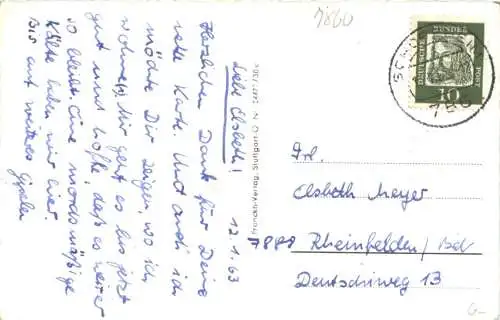 Liebe Elsbeth!
12.1.63
Herzlichen Dank für Deine
nette Karte. Und auch ich
möchte Dir zeigen, wo ich
wohne(n). Mir geht es bis jetzt
gut und hoffe, daß es weiter
so bleibt. Eine mords mäßige
Kälte haben wir hier.
Bis auf weiteres
Gisela
Franckh-Verlag, Stuttgart-O
7860
DEUTSCHE
BUNDES
POST
10
Frl.
Elsbeth Meyer
7888 Rheinfelden/Bd
Deutschweg 13
6-